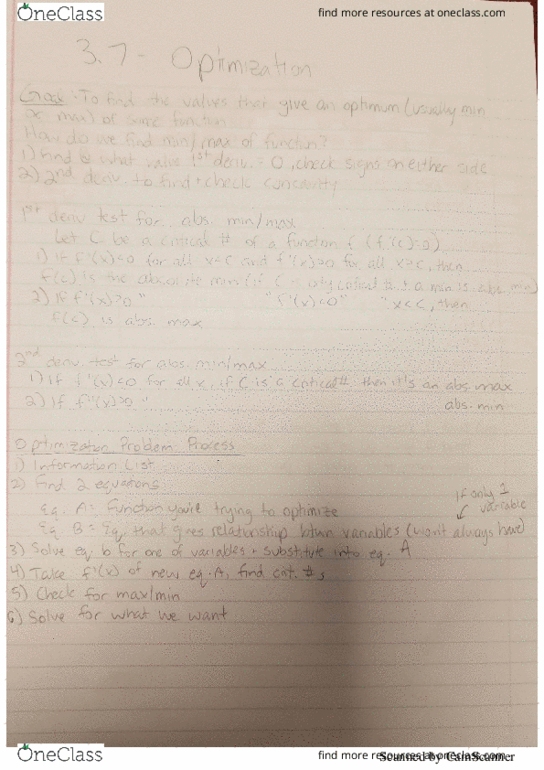 OneClass
find more resources at oneclass.com
3.7 - Optimization
Goal: To find the values that give an optimum (usually min
or max) of some function
How do we find min/max of function?
1) find @ what value 1st deriv. = 0, check signs on either side
2) 2nd deriv. to find + check concavity
1st deriv test for abs. min/max
Let C be a critical # of a function f (f'(c)=0)
1) if f'(x)<0 for all x<c and f'(x)>0 for all x>c, then
f(c) is the absolute min (if C is only critical # + a min is abs min)
2) If f'(x)>0 " " f'(x)<0" " x<c, then
f(c) is abs. max
2nd deriv test for abs. min/max
1) If f"(x)<0 for all x, if C is a critical #, then it's an abs. max
2) If f"(x)>0 " abs. min
Optimization Problem Process
1) Information List
2) Find 2 equations
If only 1
variable
Eq. A = function you're trying to optimize
Eq B = Eq. that gives relationship btwn variables (won't always have)
3) Solve eq. b for one of variables + substitute into eq. A
4) Take f'(x) of new eq. A, find crit. #s
5) Check for max/min
6) Solve for what we want
OneClass
find more resources at oneclass.com
Scanned by CamScanner